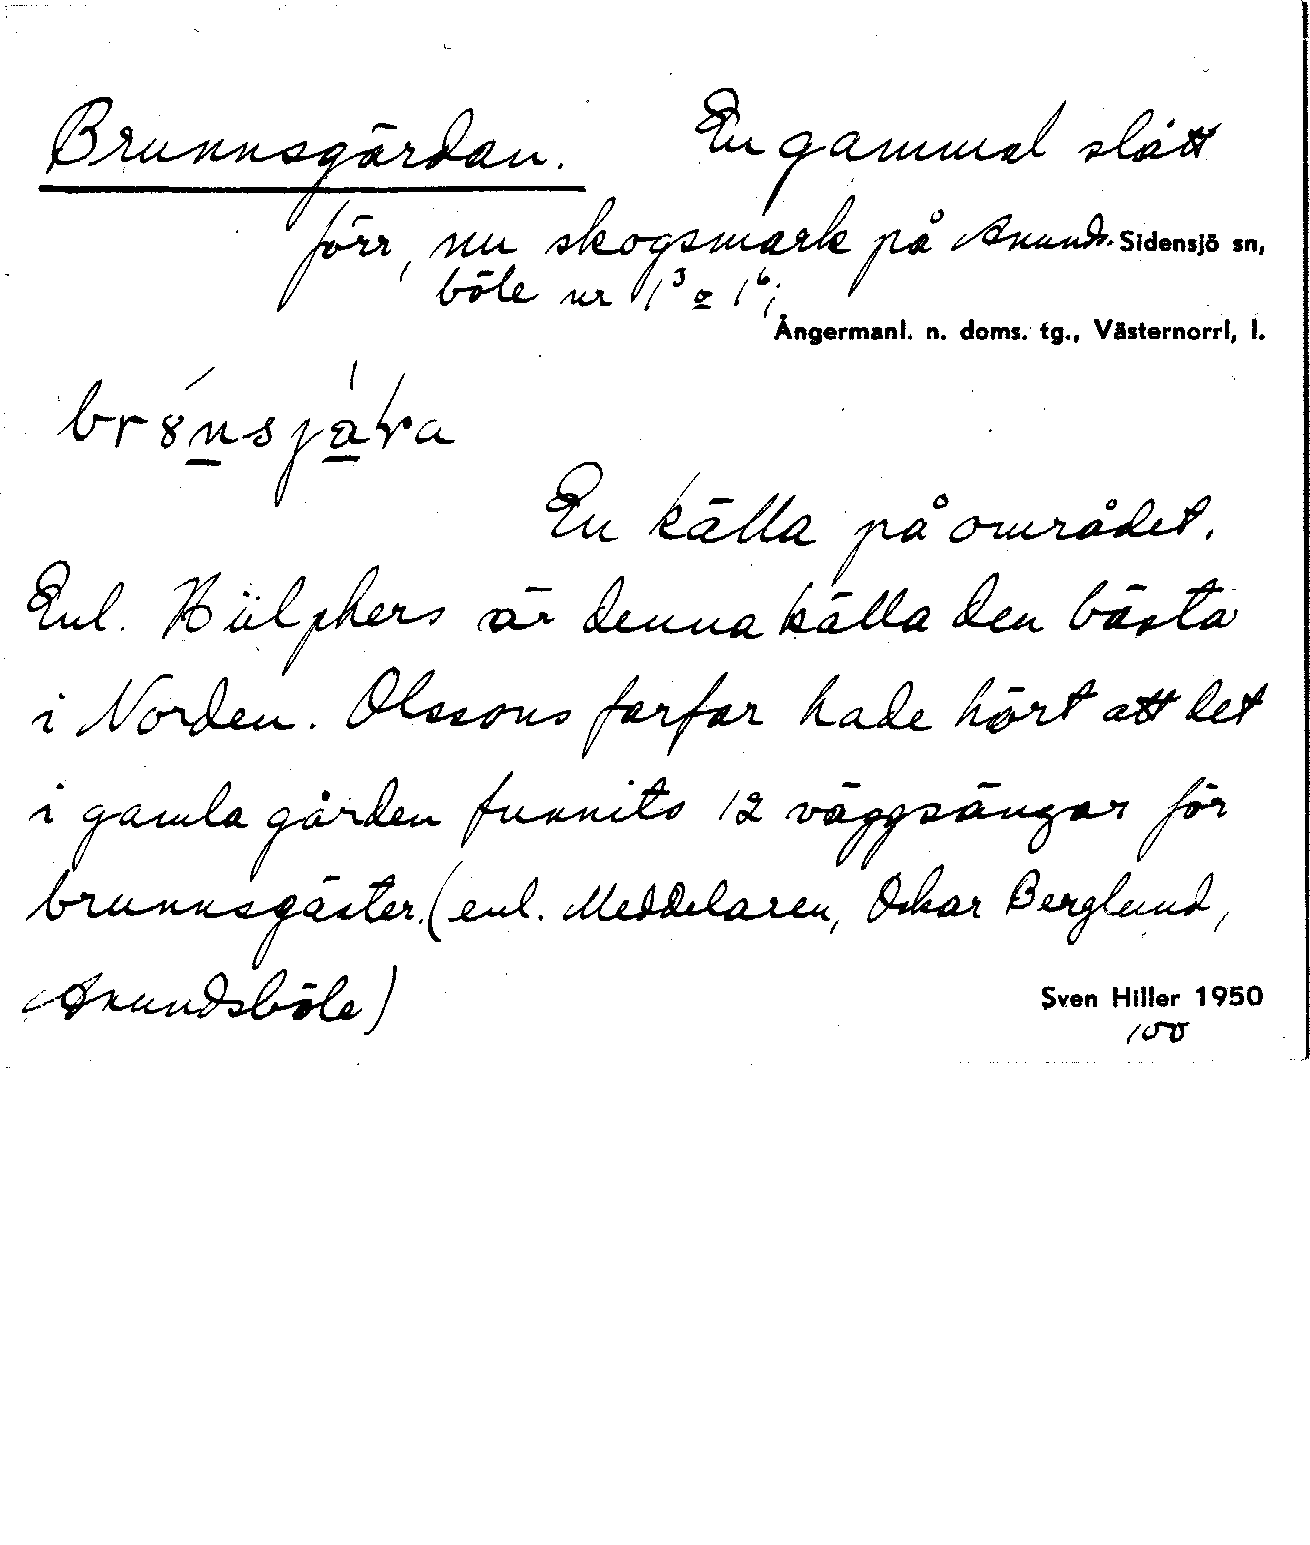 Brunnsgärdan. En gammal slått
förr, nu skogsmark på Anunds- Sidensjö sn,
böle nr 1³ o 1⁶;
Ångermanl. n. doms. tg., Västernorrl, l.
En källa på området.
Enl. Hülphers är denna källa den bästa
i Norden. Olssons farfar hade hört att det
i gamla gården funnits 12 väggsängar för
brunnsgäster. (enl. Meddelaren, Oskar Berglund,
Anundsböle)
Sven Hiller 1950